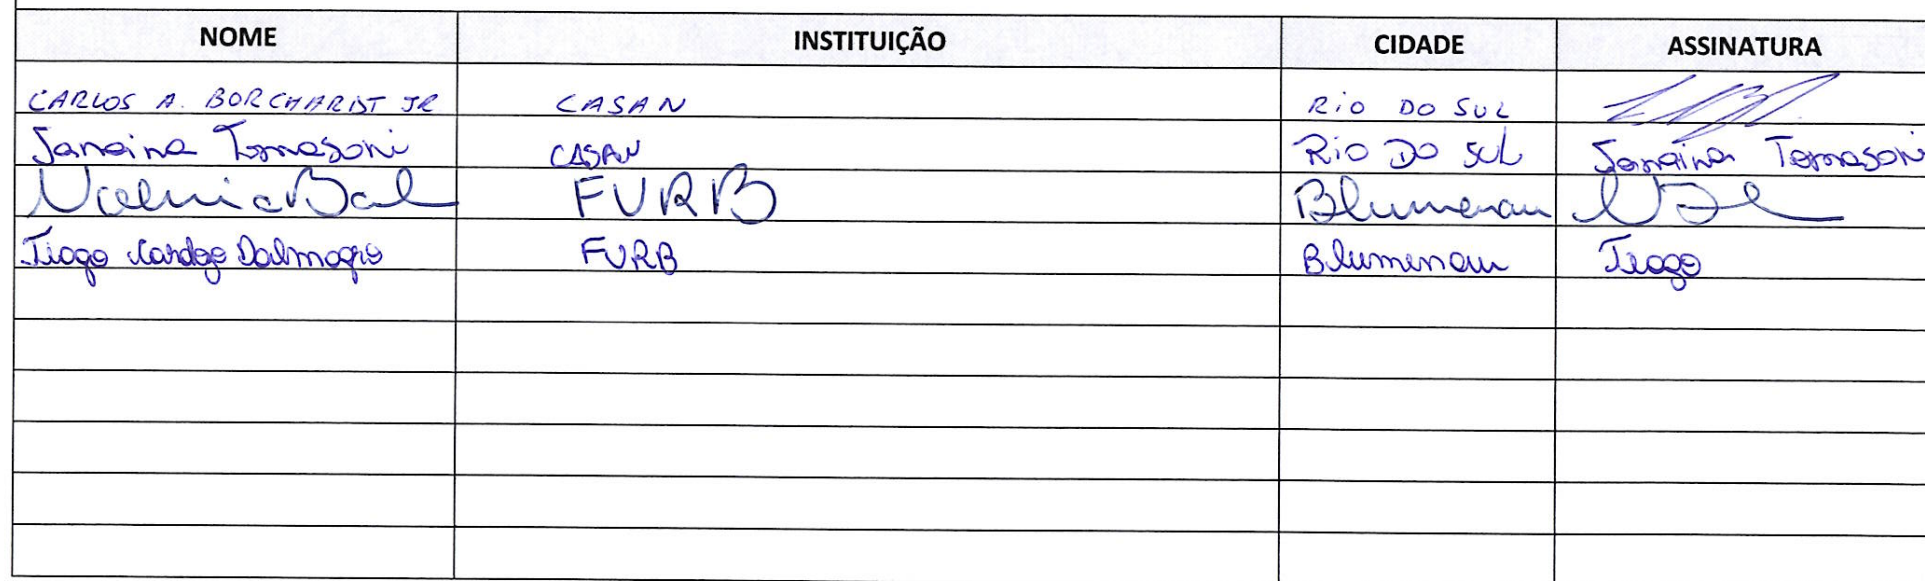 NOME INSTITUIÇÃO CIDADE ASSINATURA
CARLOS A. BORCHARDT JR CASAN RIO DO SUL
Janaina Tomasoni CASAN RIO DO SUL Janaina Tomasoni
FURB Blumenau
Tiago Cardozo Dalmagro FURB Blumenau Tiago